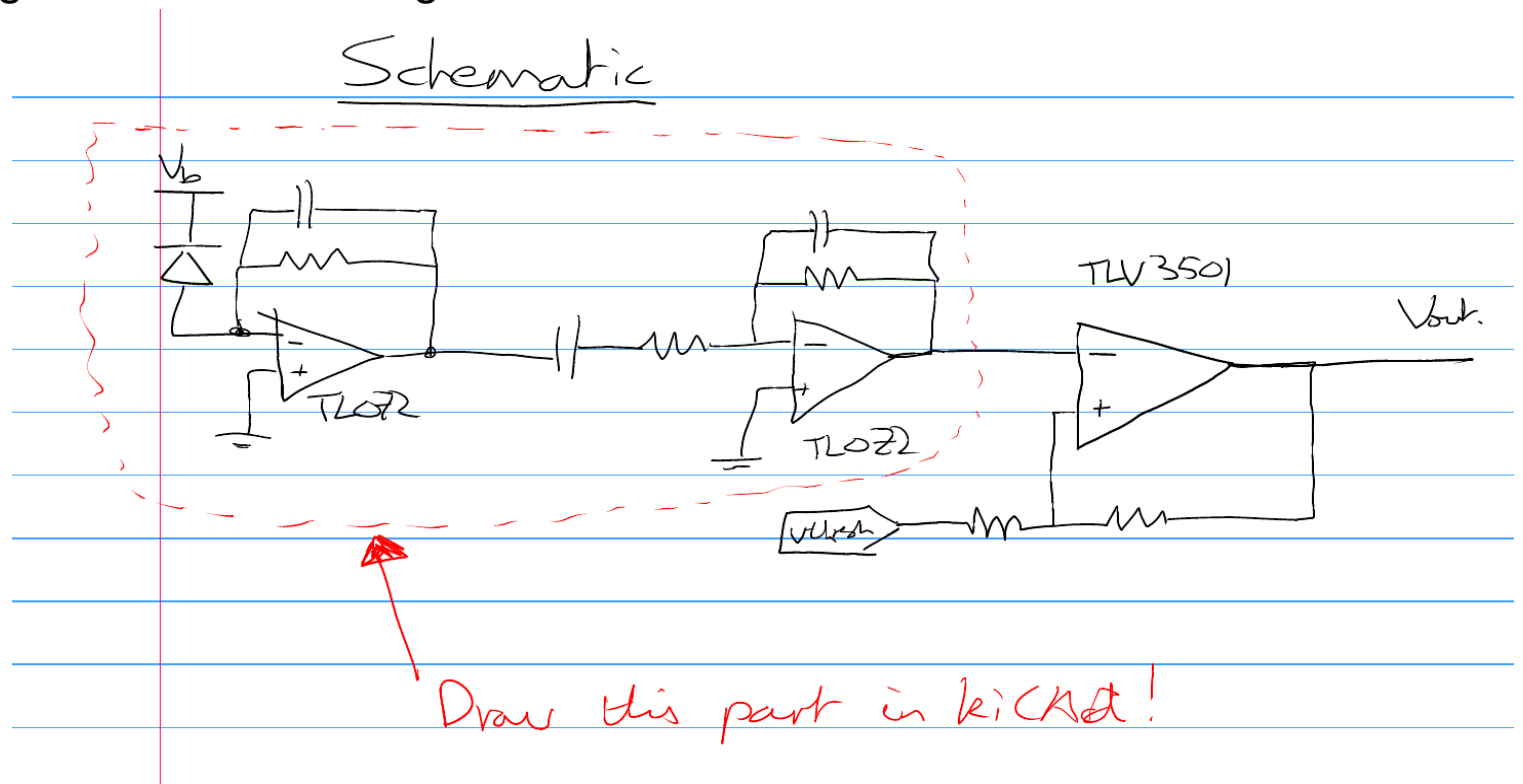 Schematic
Vb
TLV3501
Vout.
-
-
-
+
+
+
TL072
TL072
Vthresh
Draw this part in kiCAd!